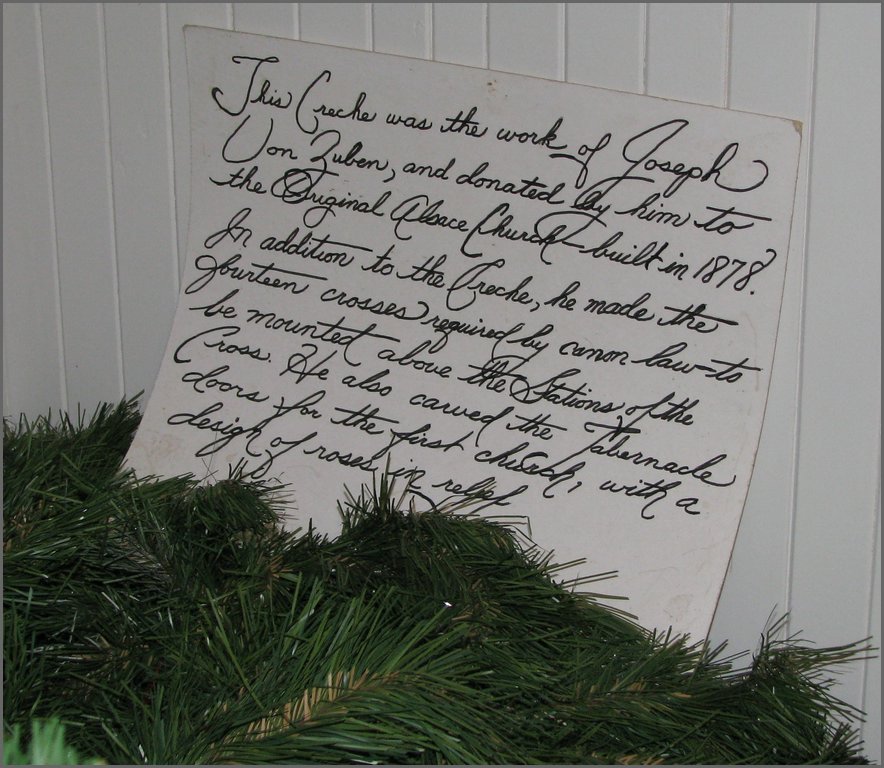 This Creche was the work of Joseph
Von Zuben, and donated by him to
the Original Alsace Church – built in 1878.
In addition to the Creche, he made the
fourteen crosses required by canon law – to
be mounted above the Stations of the
Cross. He also carved the Tabernacle
doors for the first church, with a
design of roses in relief